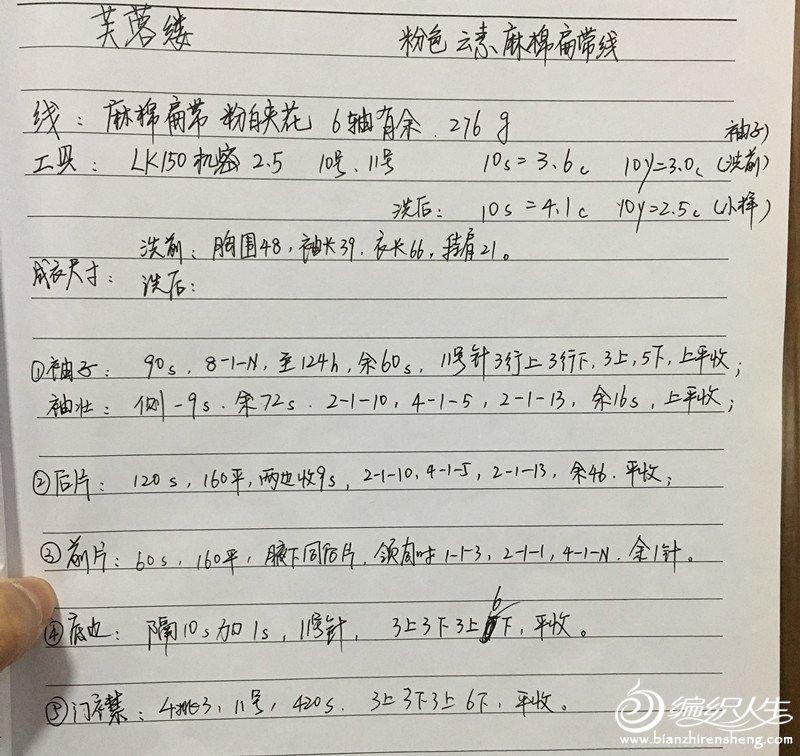 芙蓉缕 粉色云素麻棉扁带线
线：麻棉扁带 粉白夹花 6轴有余．276g
袖子
工具：LK150机密2.5 10号、11号 10s=3.6c 10y=3.0c（洗前）
洗后：10s=4.1c 10y=2.5c（小样）
洗前：胸围48，袖长39．衣长66，挂肩21。
成衣尺寸：
洗后：
①袖子：90s，8-1-N，至124h，余60s，11号针3行上3行下，3上，5下，上平收；
袖壮：侧-9s．余72s．2-1-10，4-1-5，2-1-13，余16s，上平收；
②后片：120s，160平，两边收9s，2-1-10，4-1-5，2-1-13，余46．平收；
③前片：60s，160平，腋下同后片．领同时1-1-3，2-1-1，4-1-N．余1针。
6
④底边：隔10s加1s，11号针，3上3下3上下，平收。
⑤门襟：4挑3，11号，420s．3上3下3上6下，平收。
编织人生
www.bianzhirensheng.com